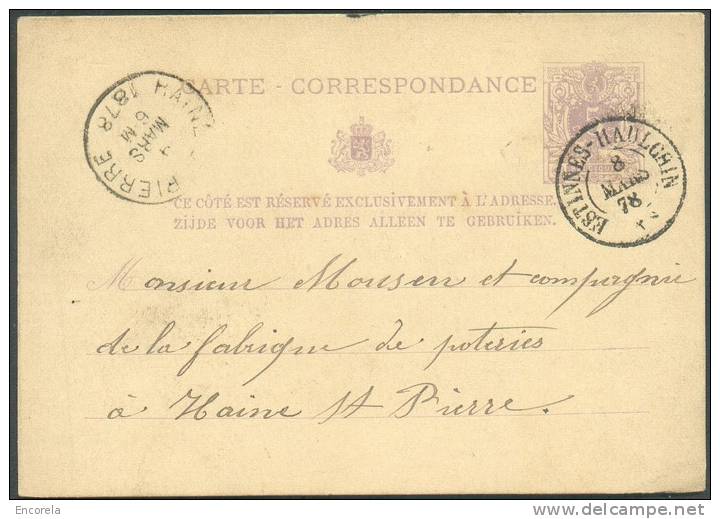 CARTE - CORRESPONDANCE
5
HAINE
PIERRE
MARS
6-M
1878
ESTINNES-HAULCHIN
8
MARS
78
CE CÔTÉ EST RÉSERVÉ EXCLUSIVEMENT À L'ADRESSE.
ZIJDE VOOR HET ADRES ALLEEN TE GEBRUIKEN.
Monsieur Mousen et compagnie
de la fabrique de poteries
à Haine St Pierre.
Encorela
delcampe.net